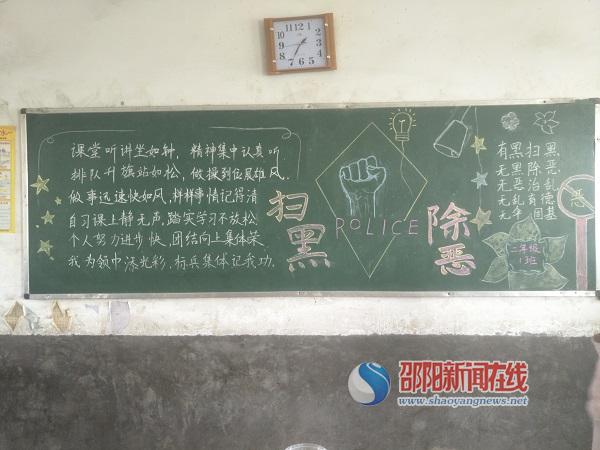 课堂听讲坐如钟，精神集中认真听
排队升旗站如松，做操到位展雄风。
做事迅速快如风，样样事情记得清
自习课上静无声，踏实学习不放松
个人努力进步快，团结向上集体荣
我为领巾添光彩，标兵集体记我功。
扫黑
POLICE
除恶
有黑扫黑
无黑除恶
无恶治乱
无乱育德
无平固基
恶
二年级
1班
邵阳新闻在线
www.shaoyangnews.net